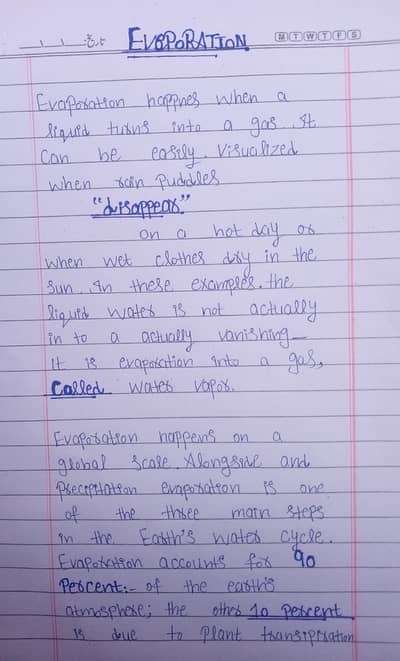 EVEPORATION
M T W T F S
Evaporation happnes when a
liquid turns into a gas. It
Can be easily. Visualized
when rain Puddles
"disappears"
on a hot day or
when wet clothes dry in the
Sun. In these examples. the
liquid water is not actually
in to a actually vanishing—
it is evaporation into a gas,
Called water vapor.
Evaporation happens on a
global Scale. Alongside and
Precipitation evaporation is one
of the three main steps
in the Earth's water cycle.
Evaporation accounts for 90
Percent:- of the earth's
atmosphere; the other 10 Percent
is due to Plant transipration